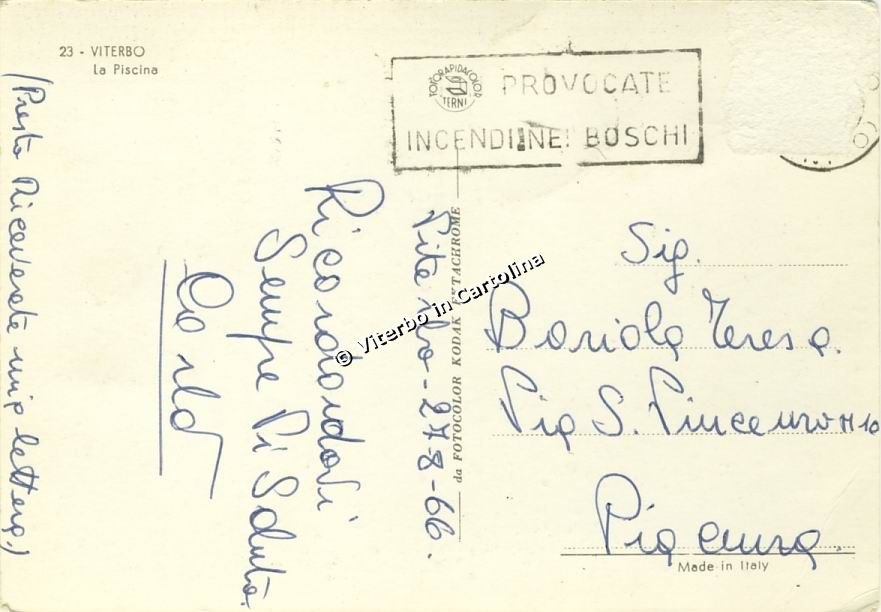 23 - VITERBO
La Piscina
FOTORAPIDACOLOR
TERNI
PROVOCATE
INCENDI NEI BOSCHI
(Presto Riceverete mia lettera.)
Ricordandovi
Sempre Vi Saluta
Carlo
Viterbo - 27-8-66.
da FOTOCOLOR KODAK EKTACHROME
© Viterbo in Cartolina
Sig.
Boriola Teresa.
Via S. Vincenzo N 10
Piacenza.
Made in Italy